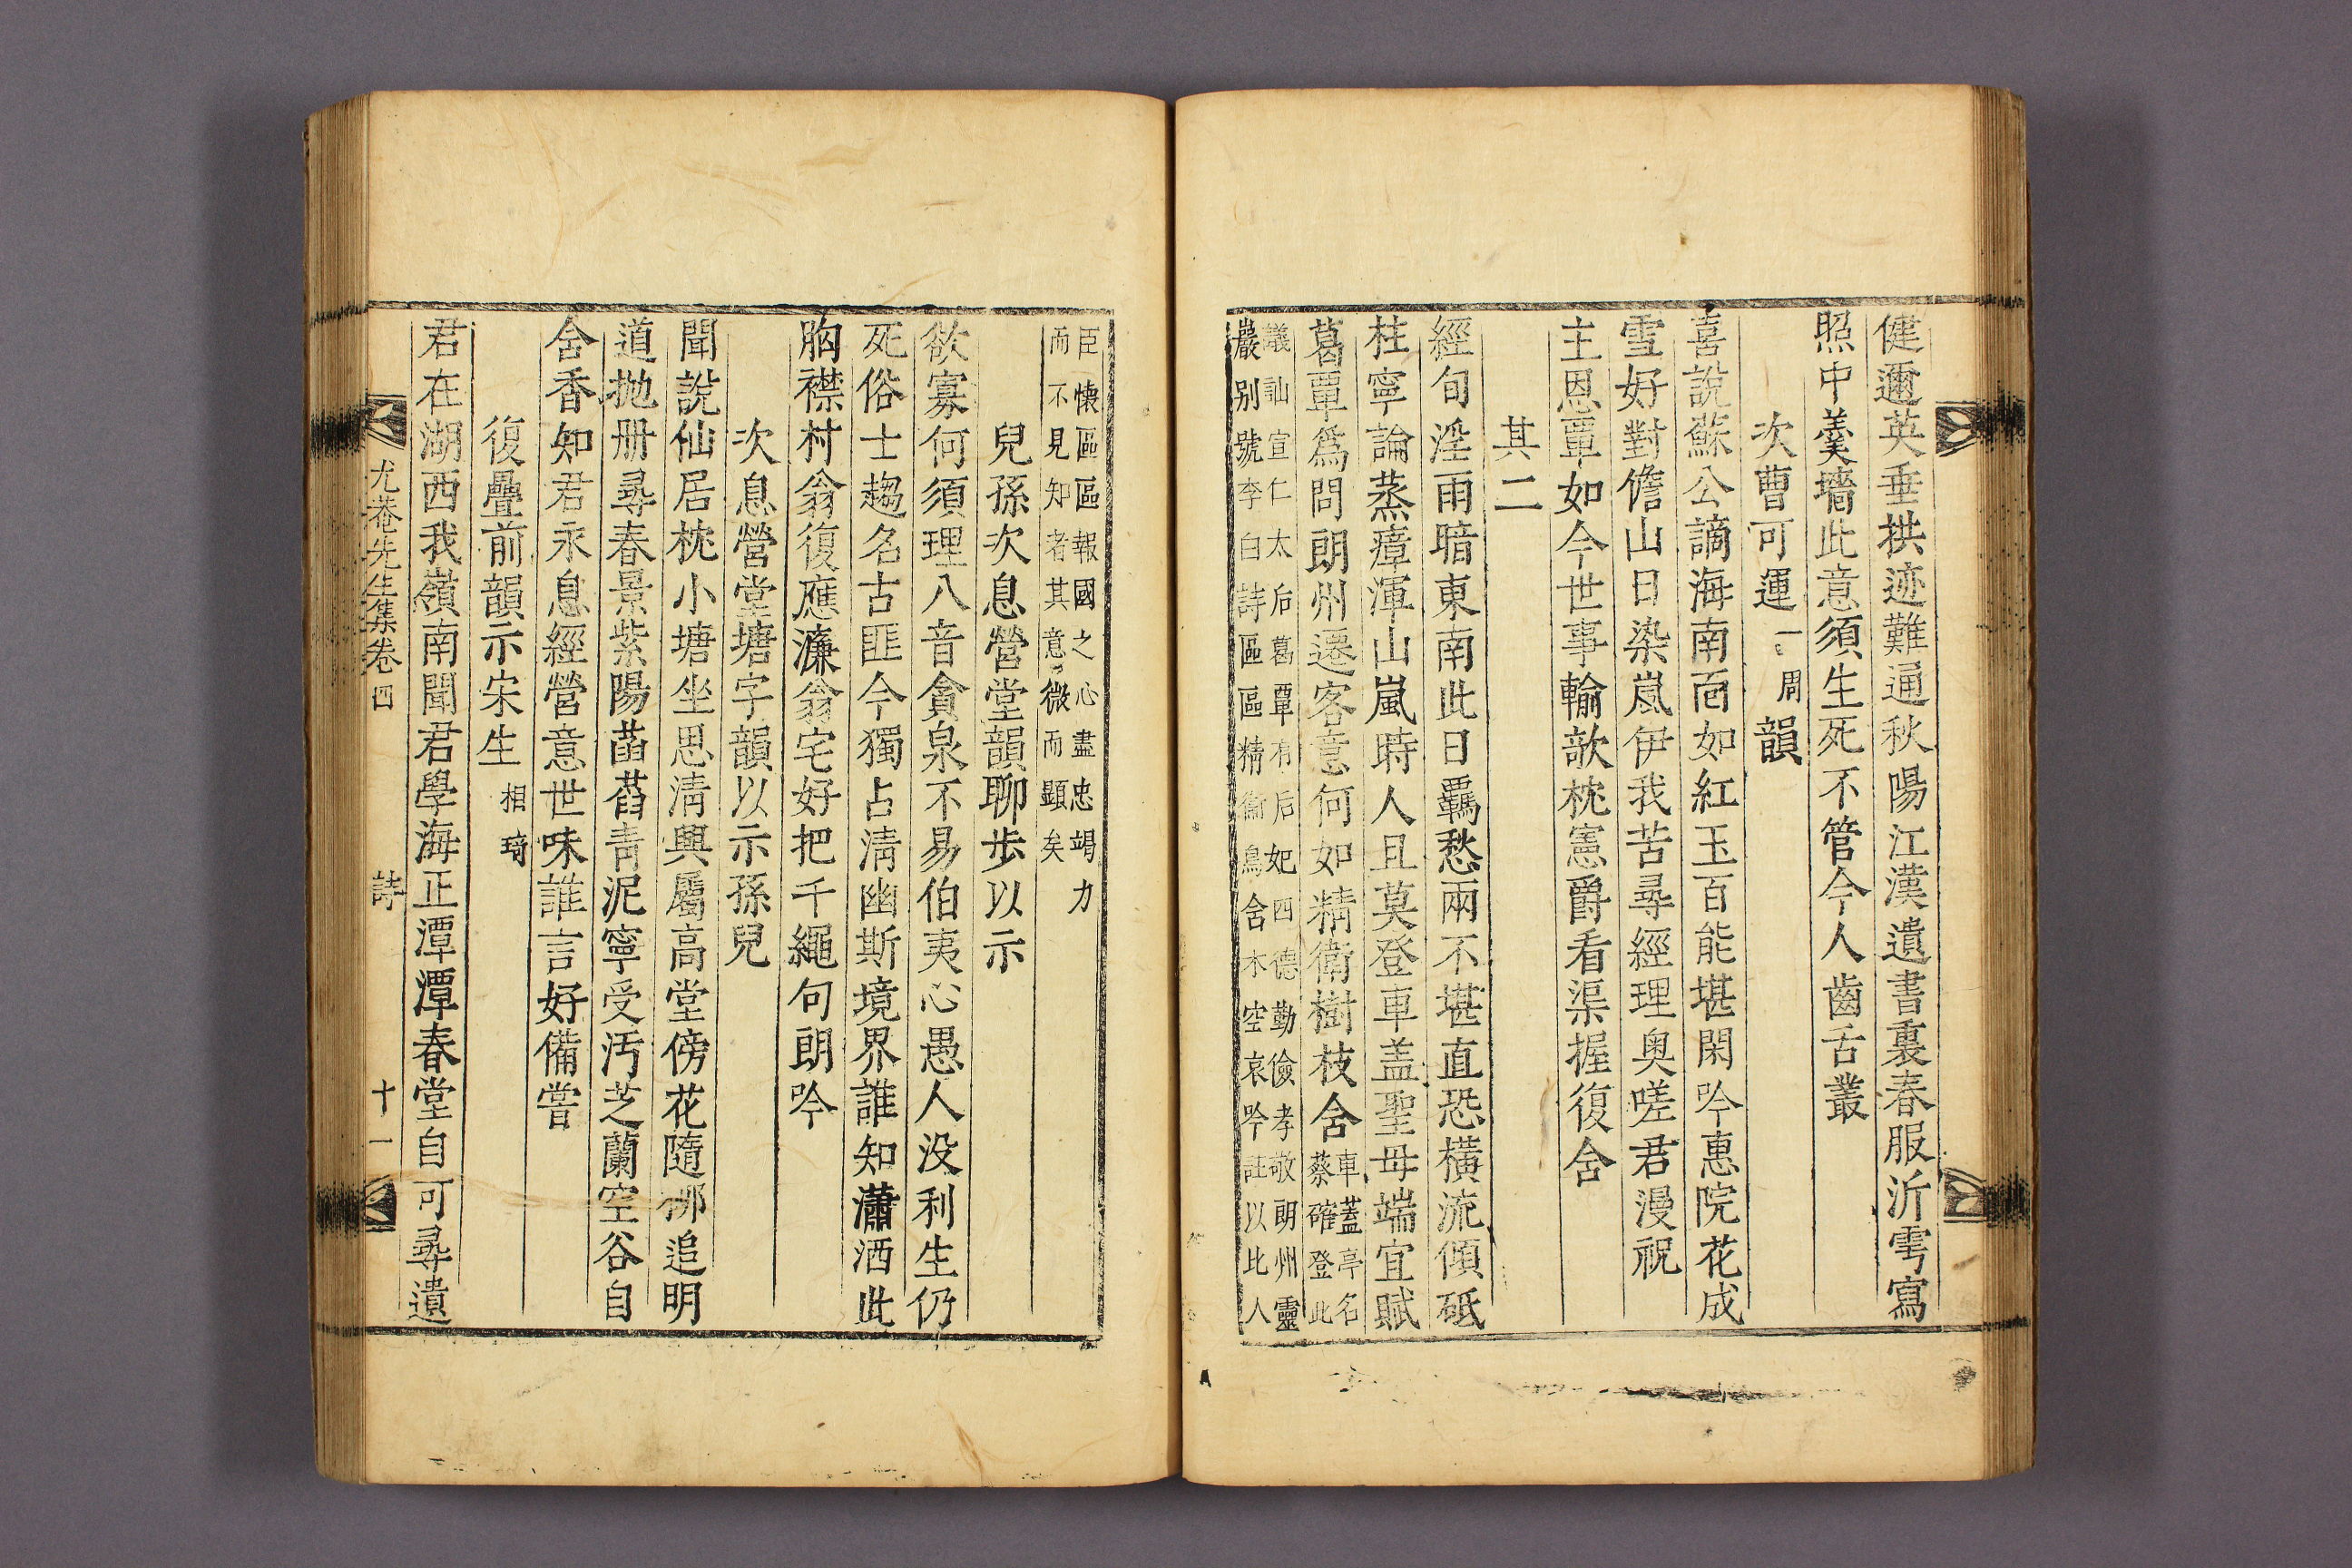 健邇英垂拱迹難通秋陽江漢遺書裏春服沂雩寫
照中羹墻此意須生死不管今人齒舌叢
次曹可運一周韻
喜說蘇公謫海南面如紅玉百能堪閑吟惠院花成
雪好對儋山日染嵐伊我苦尋經理奧嗟君漫祝
主恩覃如今世事輸欹枕寓爵看渠握復含
其二
經旬淫雨暗東南此日羈愁兩不堪直恐橫流傾砥
柱寧論蒸瘴渾山嵐時人且莫登車盖聖母端宜賦
葛覃爲問朗州遷客意何如精衛樹枝含車蓋亭名蔡確登此
議訕宣仁太后葛覃有后妃四德勤儉孝敬朗州靈
巖別號李白詩區區精衛鳥含木空哀吟註以比人
臣懷區區報國之心盡忠竭力
而不見知者其意微而顯矣
兒孫次息營堂韻聊步以示
欲寡何須理八音貪泉不易伯夷心愚人没利生仍
死俗士趨名古匪今獨占淸幽斯境界誰知瀟洒此
胸襟村翁復應濂翁宅好把千繩句朗吟
次息營堂塘字韻以示孫兒
聞說仙居枕小塘坐思淸興屬高堂傍花隨柳追明
道抛册尋春景紫陽菡萏靑泥寧受汚芝蘭空谷自
含香知君永息經營意世味誰言好備嘗
復疊前韻示宋生相琦
君在湖西我嶺南聞君學海正潭潭春堂自可尋遺
尤菴先生集卷四 詩 十一